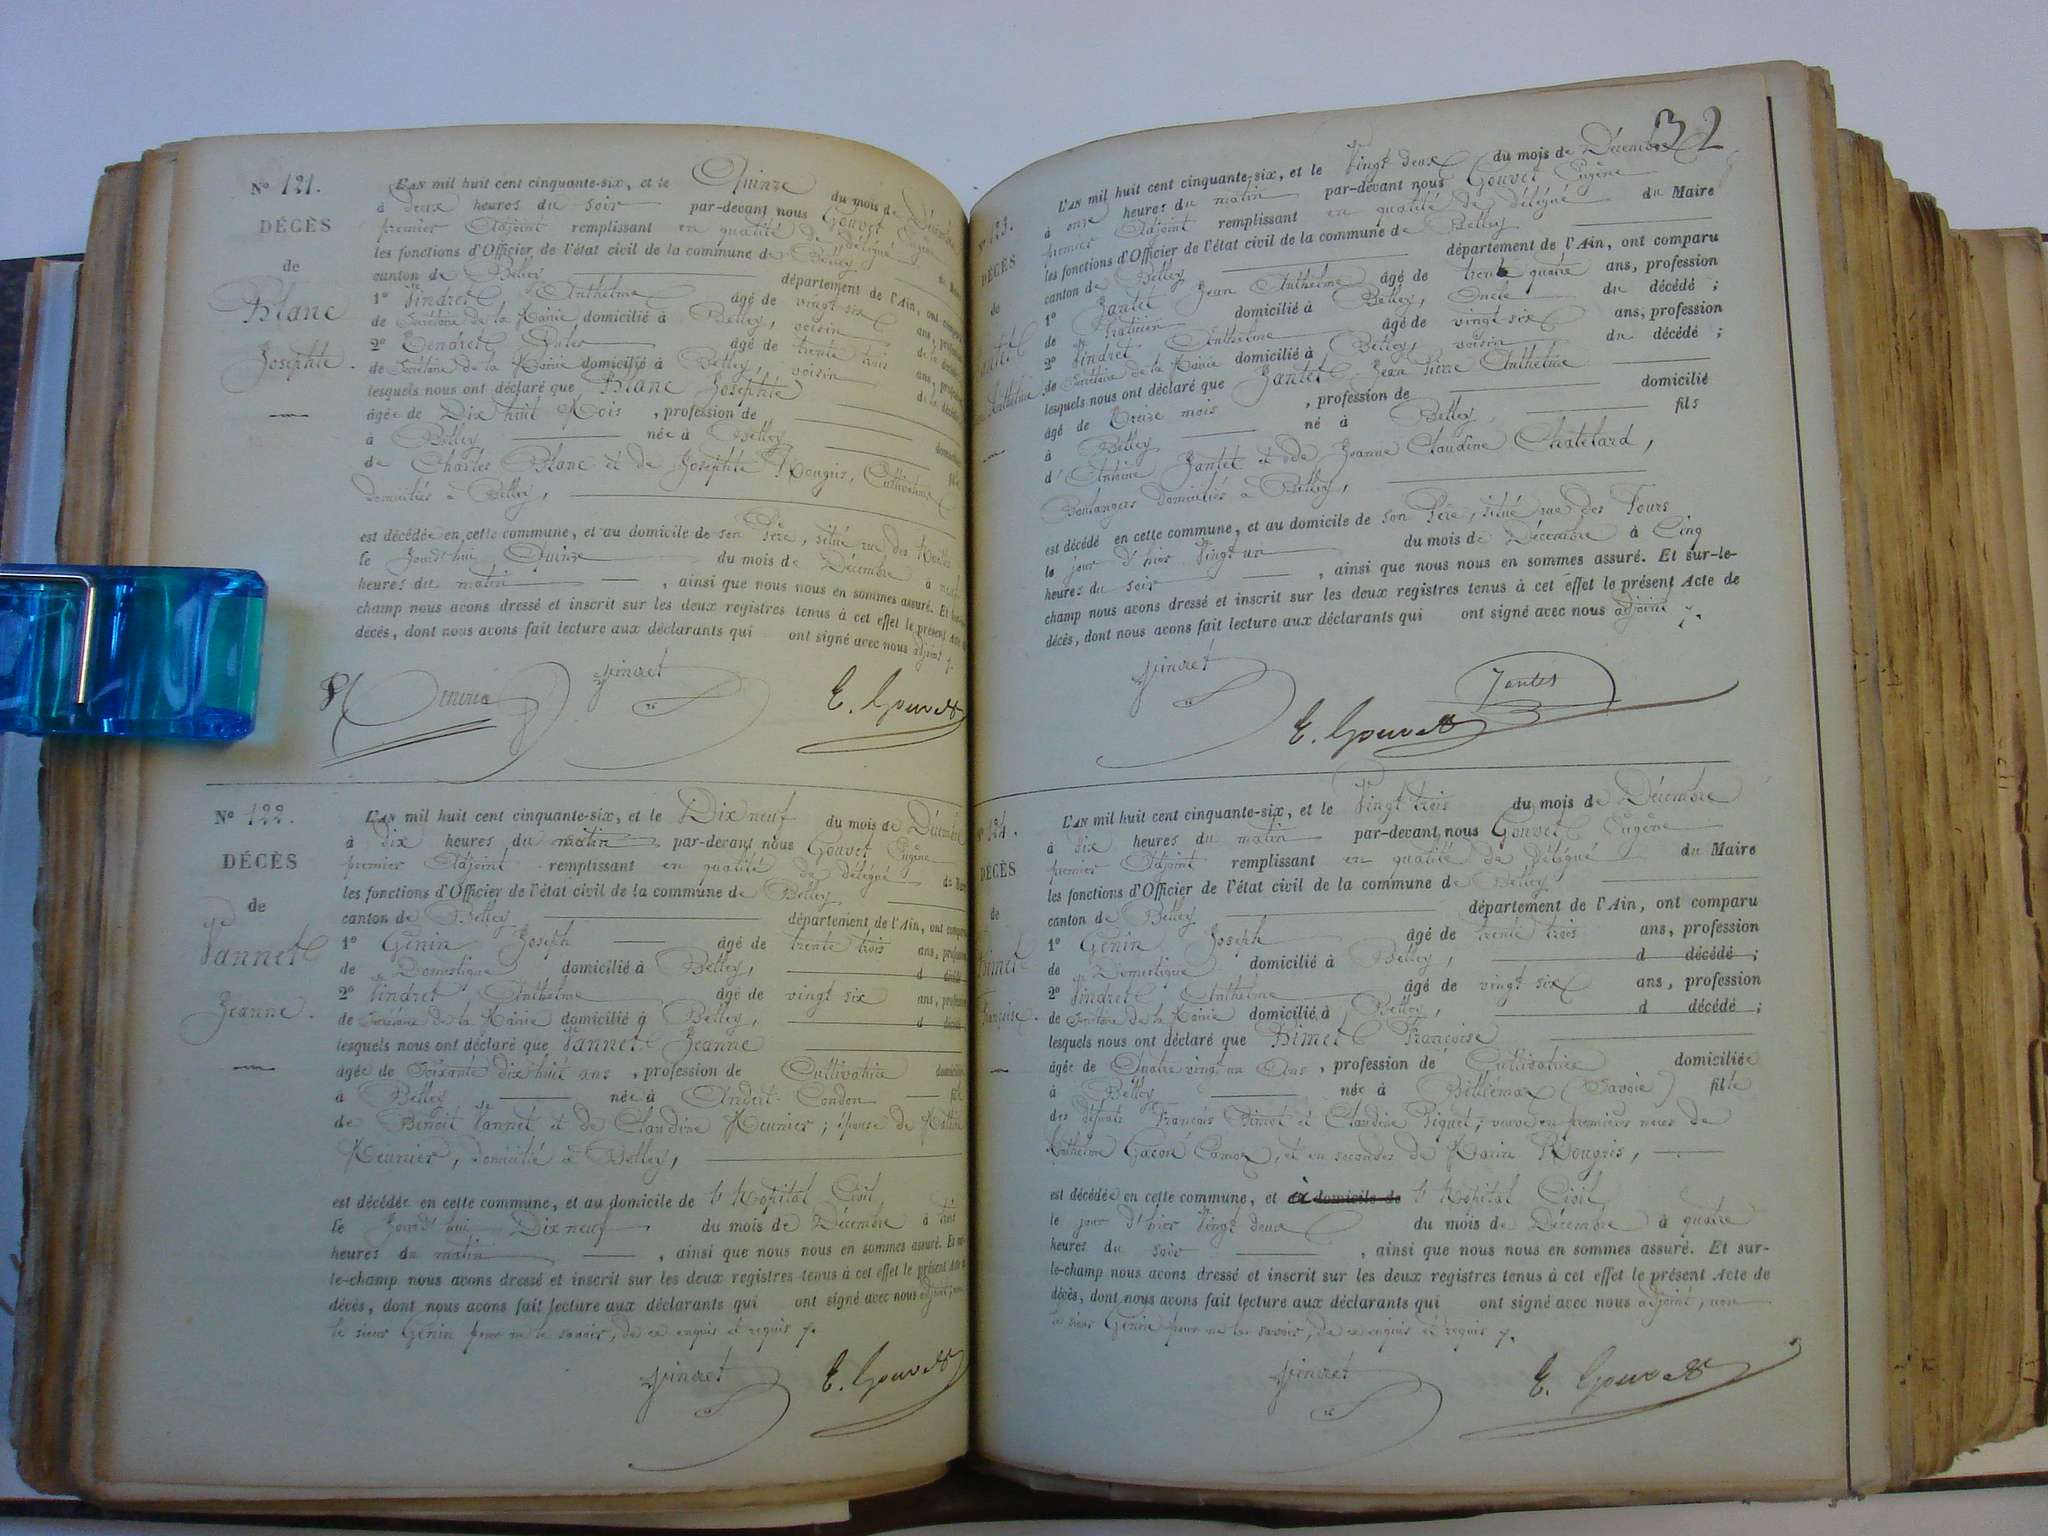 Nº 121.
DÉCÈS
de
Blanc
Josephte.
L'AN mil huit cent cinquante-six, et le Quinze du mois de Décembre
à deux heures du soir par-devant nous Gouvet Eugène
premier Adjoint remplissant en qualité de délégué
les fonctions d'Officier de l'état civil de la commune de Belley
canton de Belley département de l'Ain, ont
1º Vindret Anthelme âgé de vingt six ans,
de Secrétaire de la Mairie domicilié à Belley, voisin
2º âgé de trente trois ans,
de Secrétaire de la Mairie domicilié à Belley, voisin
lesquels nous ont déclaré que Blanc Josephte
âgée de Dix huit Mois, profession de
à Belley née à Belley
de Charles Blanc et de Josephte Rougris, Cultivateurs
domiciliés à Belley,
est décédée en cette commune, et au domicile de son Père, situé rue des
le Jourd'hui Quinze du mois de Décembre à
heures du matin, ainsi que nous nous en sommes assuré. Et
champ nous avons dressé et inscrit sur les deux registres tenus à cet effet le présent
décès, dont nous avons fait lecture aux déclarants qui ont signé avec nous adjoint
Vindret
E. Gouvet
Nº 122.
DÉCÈS
de
Vannet
Jeanne.
L'AN mil huit cent cinquante-six, et le Dix neuf du mois de Décembre
à dix heures du matin par-devant nous Gouvet Eugène
premier Adjoint remplissant en qualité de délégué
les fonctions d'Officier de l'état civil de la commune de Belley
canton de Belley département de l'Ain, ont
1º Génin Joseph âgé de trente trois ans,
de Domestique domicilié à Belley, d
2º Vindret Anthelme âgé de vingt six ans,
de Secrétaire de la Mairie domicilié à Belley, d
lesquels nous ont déclaré que Vannet Jeanne
âgée de Soixante dix huit ans, profession de Cultivatrice
à Belley née à Andert-Condon
de Benoit Vannet et de Claudine Meunier; épouse de
Meunier, domicilié à Belley,
est décédée en cette commune, et au domicile de l'Hopital Civil
le Jourd'hui Dix neuf du mois de Décembre à
heures du matin, ainsi que nous nous en sommes assuré. Et
le-champ nous avons dressé et inscrit sur les deux registres tenus à cet effet le présent Acte
décès, dont nous avons fait lecture aux déclarants qui ont signé avec nous adjoint,
le sieur Génin pour ne le savoir, de ce enquis et requis
Vindret
E. Gouvet
32
123.
DÉCÈS
de
L'AN mil huit cent cinquante-six, et le Vingt deux du mois de Décembre
à onze heures du matin par-devant nous Gouvet Eugène
premier Adjoint remplissant en qualité de délégué du Maire
les fonctions d'Officier de l'état civil de la commune de Belley
canton de Belley département de l'Ain, ont comparu
1º Jantet Jean Anthelme âgé de trente quatre ans, profession
de Praticien domicilié à Belley, Oncle du décédé;
2º Vindret Anthelme âgé de vingt six ans, profession
de Secrétaire de la Mairie domicilié à Belley, voisin du décédé;
lesquels nous ont déclaré que Jantet Jean Pierre Anthelme
âgé de Treize mois, profession de domicilié
à Belley né à Belley fils
d'Antoine Jantet et de Jeanne Claudine Chatelard,
Boulangers domiciliés à Belley,
est décédé en cette commune, et au domicile de son Père, situé rue des Fours
le jour d'hier Vingt un du mois de Décembre à Cinq
heures du soir, ainsi que nous nous en sommes assuré. Et sur-le-
champ nous avons dressé et inscrit sur les deux registres tenus à cet effet le présent Acte de
décès, dont nous avons fait lecture aux déclarants qui ont signé avec nous adjoint
Vindret
Jantet
E. Gouvet
124.
DÉCÈS
de
Bimet
Françoise.
L'AN mil huit cent cinquante-six, et le Vingt trois du mois de Décembre
à dix heures du matin par-devant nous Gouvet Eugène
premier Adjoint remplissant en qualité de délégué du Maire
les fonctions d'Officier de l'état civil de la commune de Belley
canton de Belley département de l'Ain, ont comparu
1º Génin Joseph âgé de trente trois ans, profession
de Domestique domicilié à Belley, d décédé;
2º Vindret Anthelme âgé de vingt six ans, profession
de Secrétaire de la Mairie domicilié à Belley, d décédé;
lesquels nous ont déclaré que Bimet Françoise
âgée de Quatre vingt un Ans, profession de Cultivatrice domiciliée
à Belley née à (Savoie) fille
des défunts François Bimet et Claudine Piquet; veuve en premières noces de
Anthelme, et en secondes de Marin Rougris,
est décédée en cette commune, et à domicile de l'Hopital Civil
le jour d'hier Vingt deux du mois de Décembre à quatre
heures du soir, ainsi que nous nous en sommes assuré. Et sur-
le-champ nous avons dressé et inscrit sur les deux registres tenus à cet effet le présent Acte de
décès, dont nous avons fait lecture aux déclarants qui ont signé avec nous adjoint, non
le sieur Génin pour ne le savoir, de ce enquis et requis
Vindret
E. Gouvet